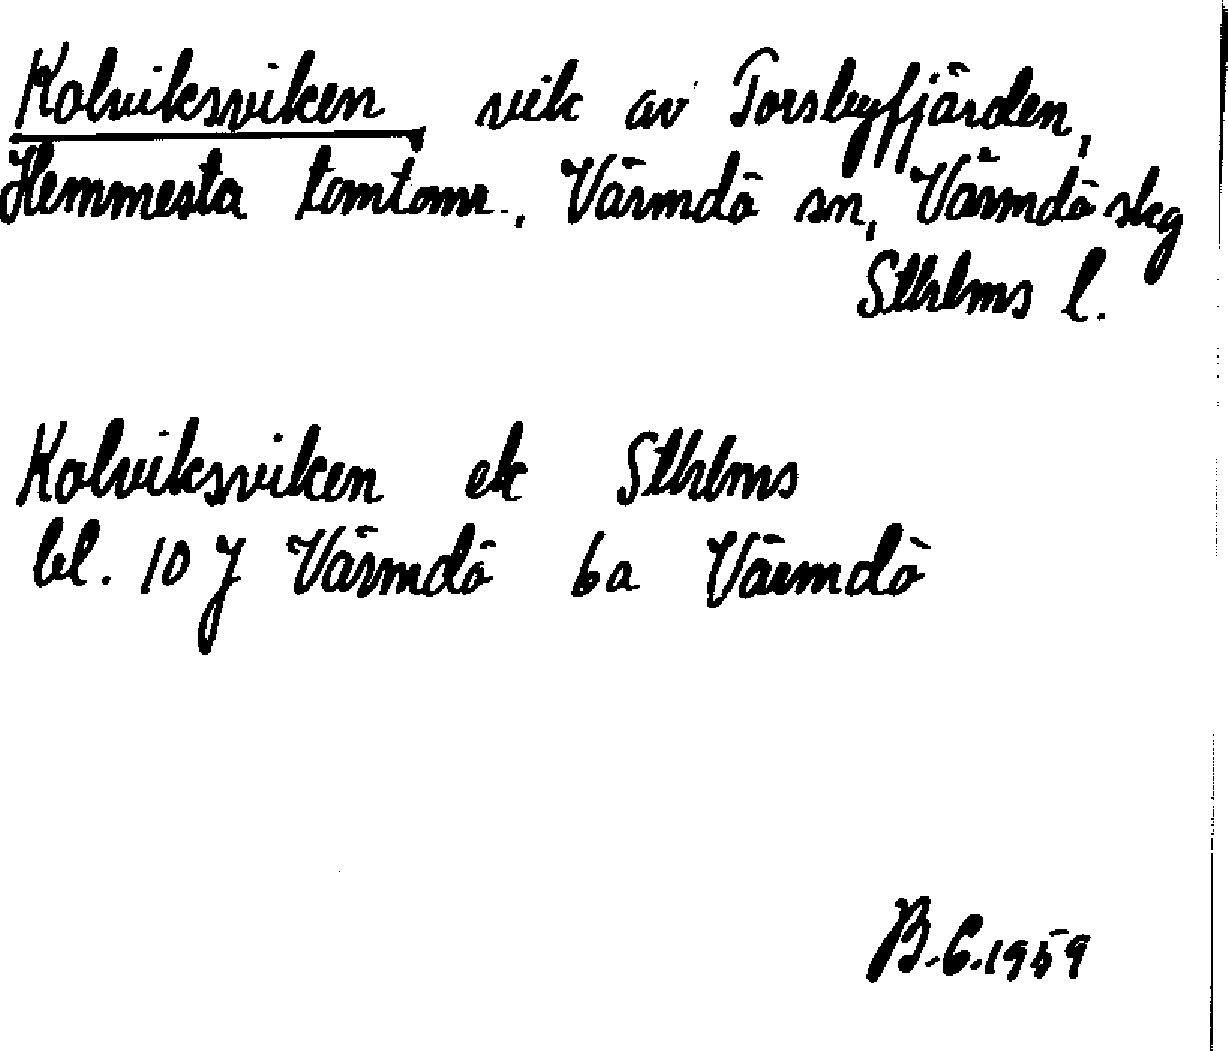 Kolviksviken vik av Torsbyfjärden,
Hemmesta tomtomr., Värmdö sn, Värmdö skg
Sthlms l.
Kolviksviken ek Sthlms
bl. 10 J Värmdö 6a Värmdö
B.C. 1959